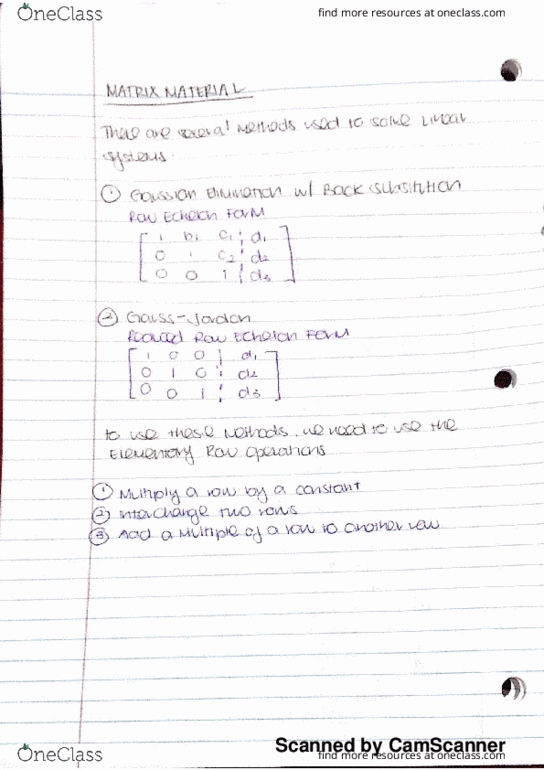 OneClass
find more resources at oneclass.com
MATRIX MATERIAL
There are several methods used to solve Linear
systems.
① Gaussian Elimination w/ Back Substitution
Row Echelon Form
1 b₁ c₁ ¦ d₁
0 1 c₂ ¦ d₂
0 0 1 ¦ d₃
② Gauss-Jordan
Reduced Row Echelon Form
1 0 0 ¦ d₁
0 1 0 ¦ d₂
0 0 1 ¦ d₃
to use these methods, we need to use the
Elementary Row Operations
① Multiply a row by a constant
② interchange two rows
③ Add a multiple of a row to another row
Scanned by CamScanner
OneClass
find more resources at oneclass.com